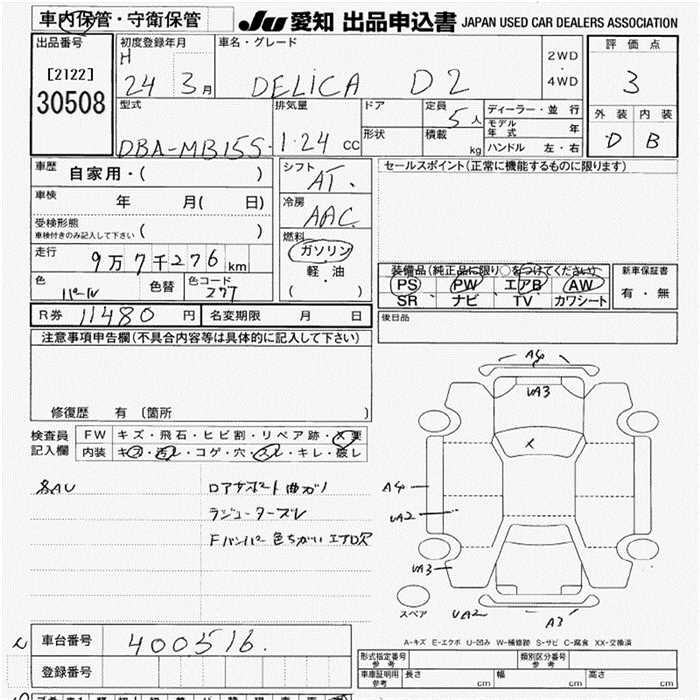 車内保管・守衛保管
JU 愛知 出品申込書 JAPAN USED CAR DEALERS ASSOCIATION
出品番号
[2122]
30508
初度登録年月
H
24 3月
車名・グレード
DELICA D2
2WD
・
4WD
評価点
3
外装 内装
D B
型式
DBA-MB15S
排気量
1.24 cc
ドア
形状
定員
5人
積載
kg
ディーラー・並行
モデル年式 年
ハンドル 左・右
車歴
自家用・( )
車検
年 月( 日)
受検形態
車検付きのみ記入して下さい ( )
走行
9万7千276km
色
パール
色替
色コード
シフト
AT.
冷房
AAC
燃料
ガソリン
軽・油
( )
セールスポイント(正常に機能するものに限ります)
装備品(純正品に限り○をつけてください)
PS PW エアB AW
SR ナビ TV カワシート
新車保証書
有・無
後日品
R券 11480円
名変期限 月 日
注意事項申告欄(不具合内容等は具体的に記入して下さい)
修復歴 有 〔箇所 〕
検査員
記入欄
FW キズ・飛石・ヒビ割・リペア跡・X要
内装 キズ・汚レ・コゲ・穴・スレ・キレ・破レ
ロアサポート曲ガリ
ラジコーターズレ
Fバンパー色ちがい エアロ欠
A4
UA3
X
A4
UA2
UA3
スペア
UA2
A3
A-キズ E-エクボ U-凹み W-補修跡 S-サビ C-腐食 XX-交換済
車台番号 400516
登録番号
形式指定番号
参考
類別区分番号
参考
車庫証明用
参考
長さ cm
幅 cm
高さ cm